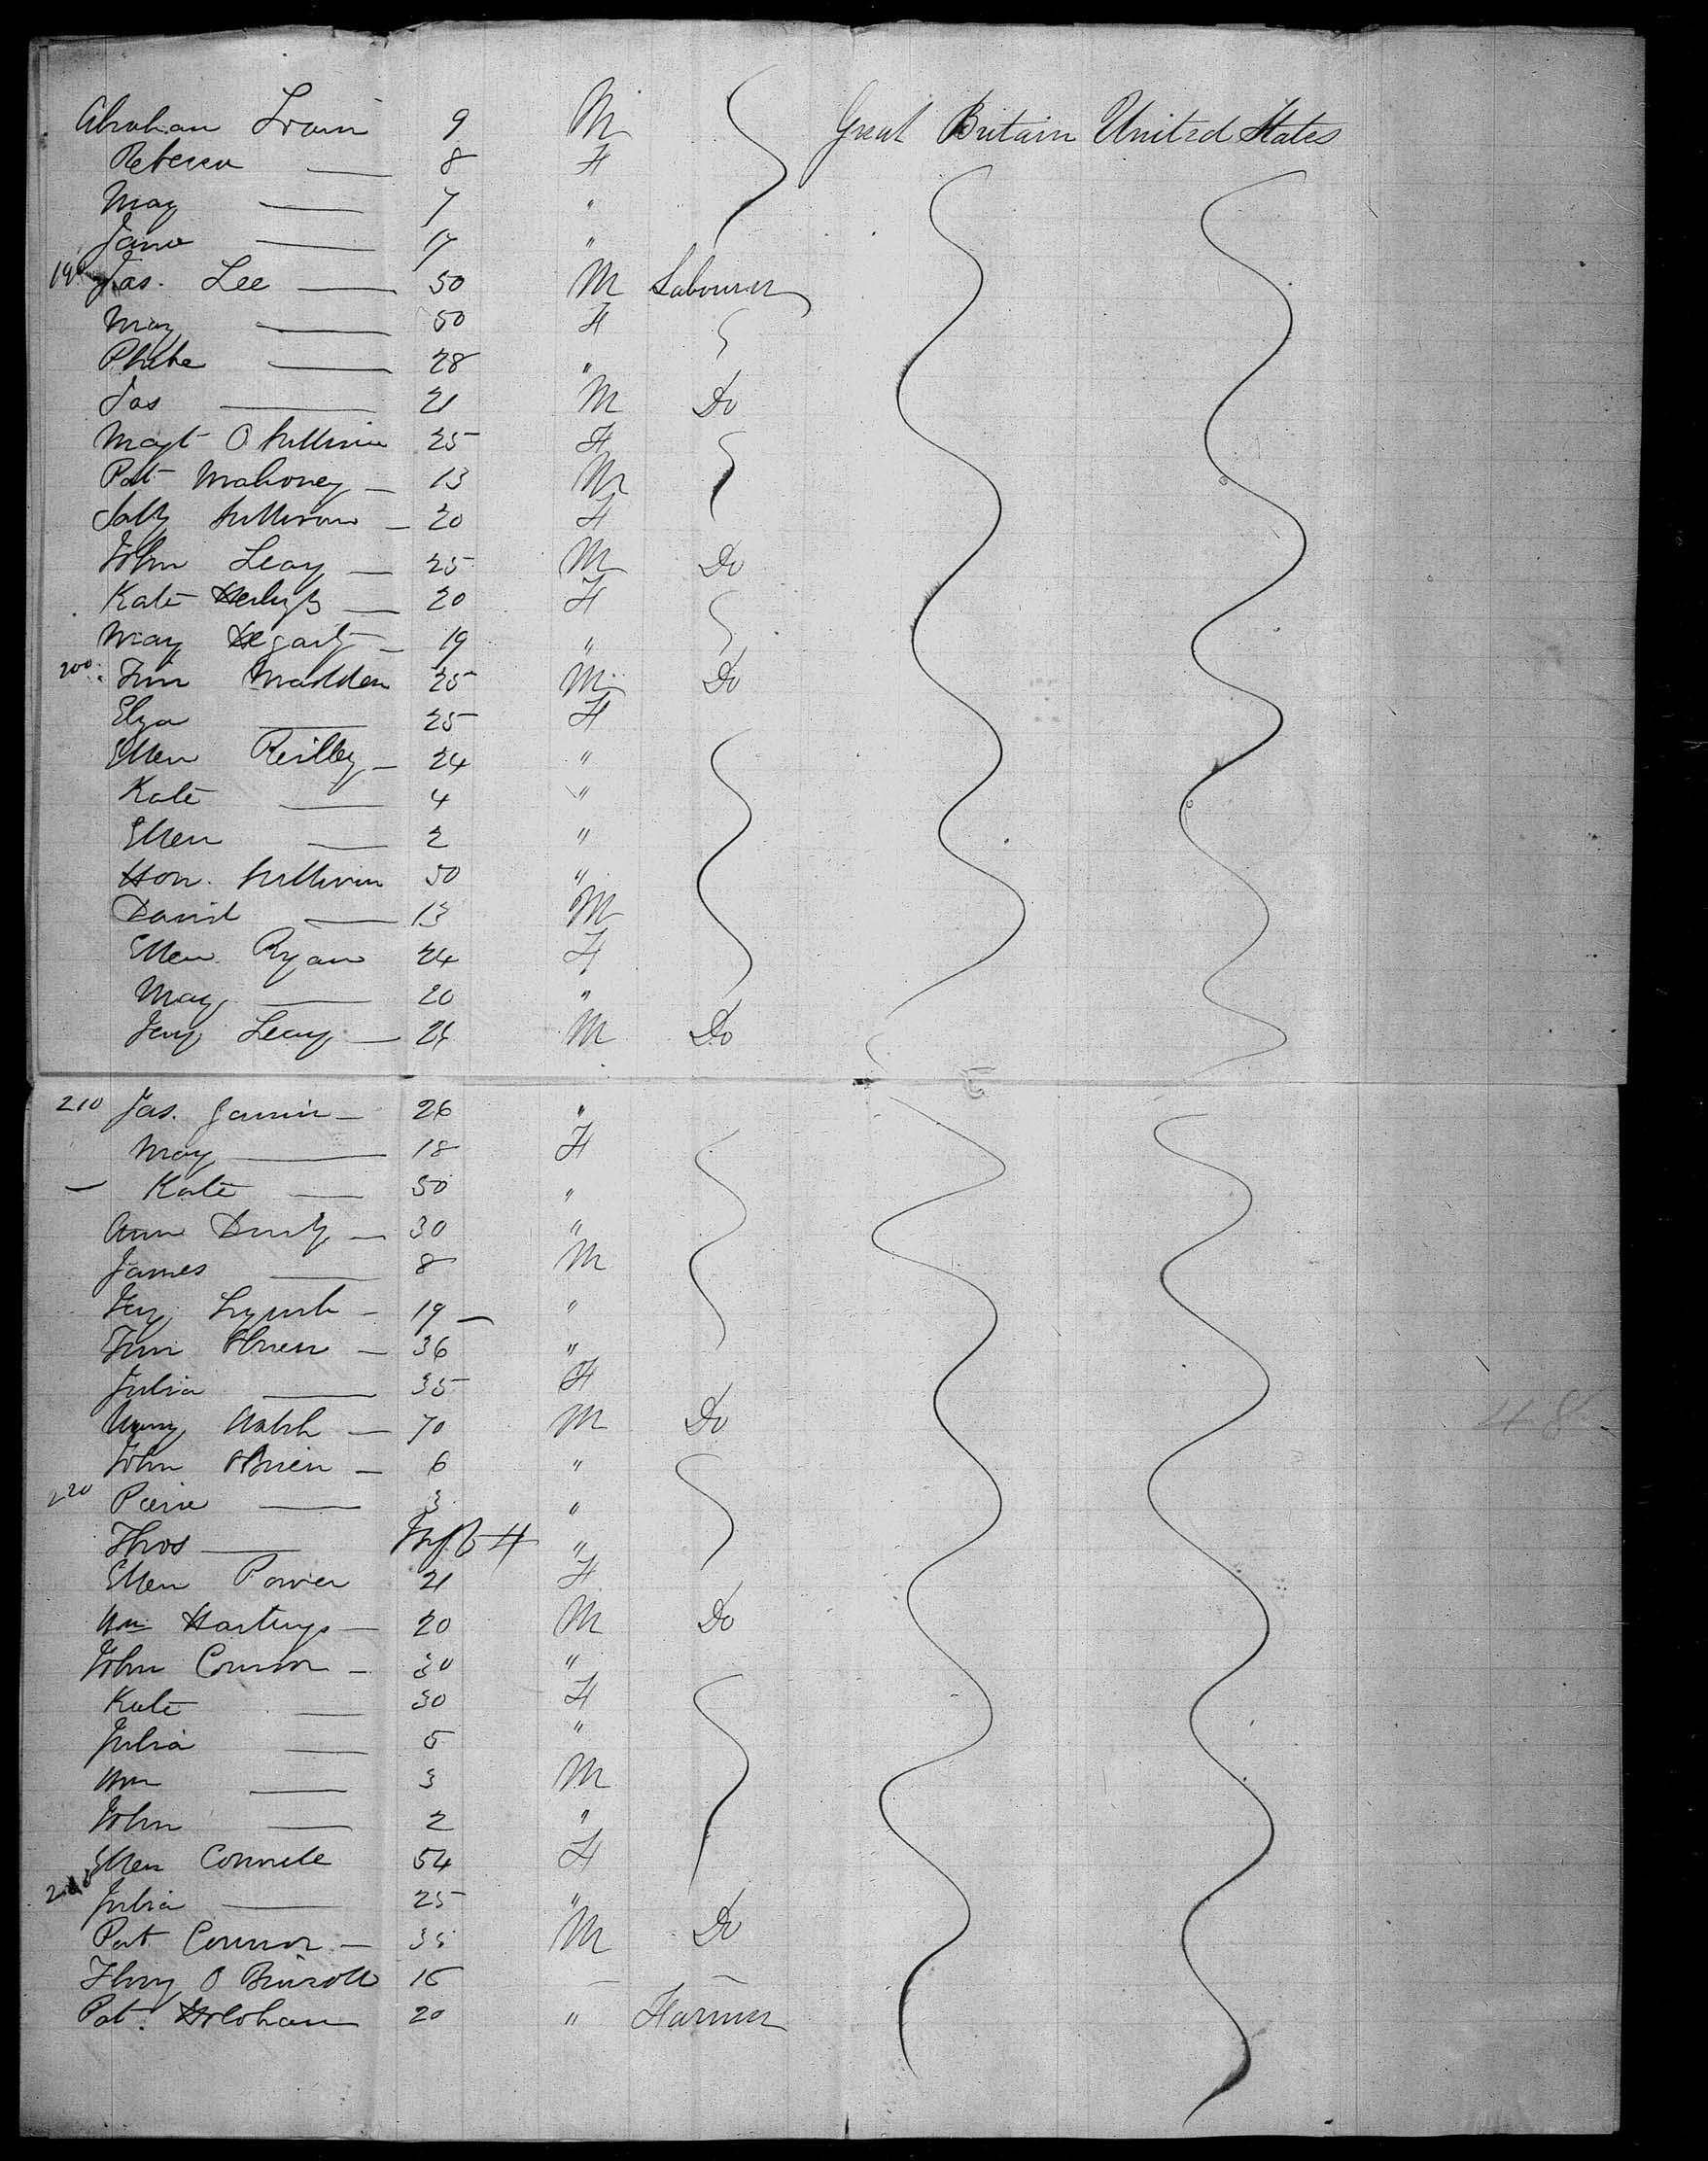 Abraham Irwin 9 M Great Britain United States
Rebecca — 8 F
May — 7 "
Jane — 17 "
190 Jas. Lee — 50 M Labourer
May — 50 F
Phebe — 28 "
Jas — 21 M Do
Magt O Sullivan 25 F
Pat Mahoney — 13 M
Sally Sullivan — 20 F
John Leay — 25 M Do
Kate Herlihy — 20 F
May Hegarty — 19 "
200 Tim Madden 25 M Do
Elza — 25 F
Ellen Reilley — 24 "
Kate — 4 "
Ellen — 2 "
Hon. Sullivan 50 "
David — 13 M
Ellen Ryan 24 F
May — 20 "
Jery Leary — 24 M Do
210 Jas. 26 "
May — 18 F
— Kate — 50 "
Ann — 30 "
James — 8 M
Jery Lynch — 19 — "
Tim OBrien — 36 "
Julia — 35 F
Walsh — 70 M Do
John OBrien — 6 "
220 — 3 "
Thos — Inft "
Ellen Power 21 F
Wm Hastings — 20 M Do
John Connor — 30 "
Kate — 30 F
Julia — 5 "
Wm — 3 M
John — 2 "
Ellen 54 F
Julia — 25 "
Pat Connor — 35 M Do
O 16 — —
Pat. 20 " Farmer
48